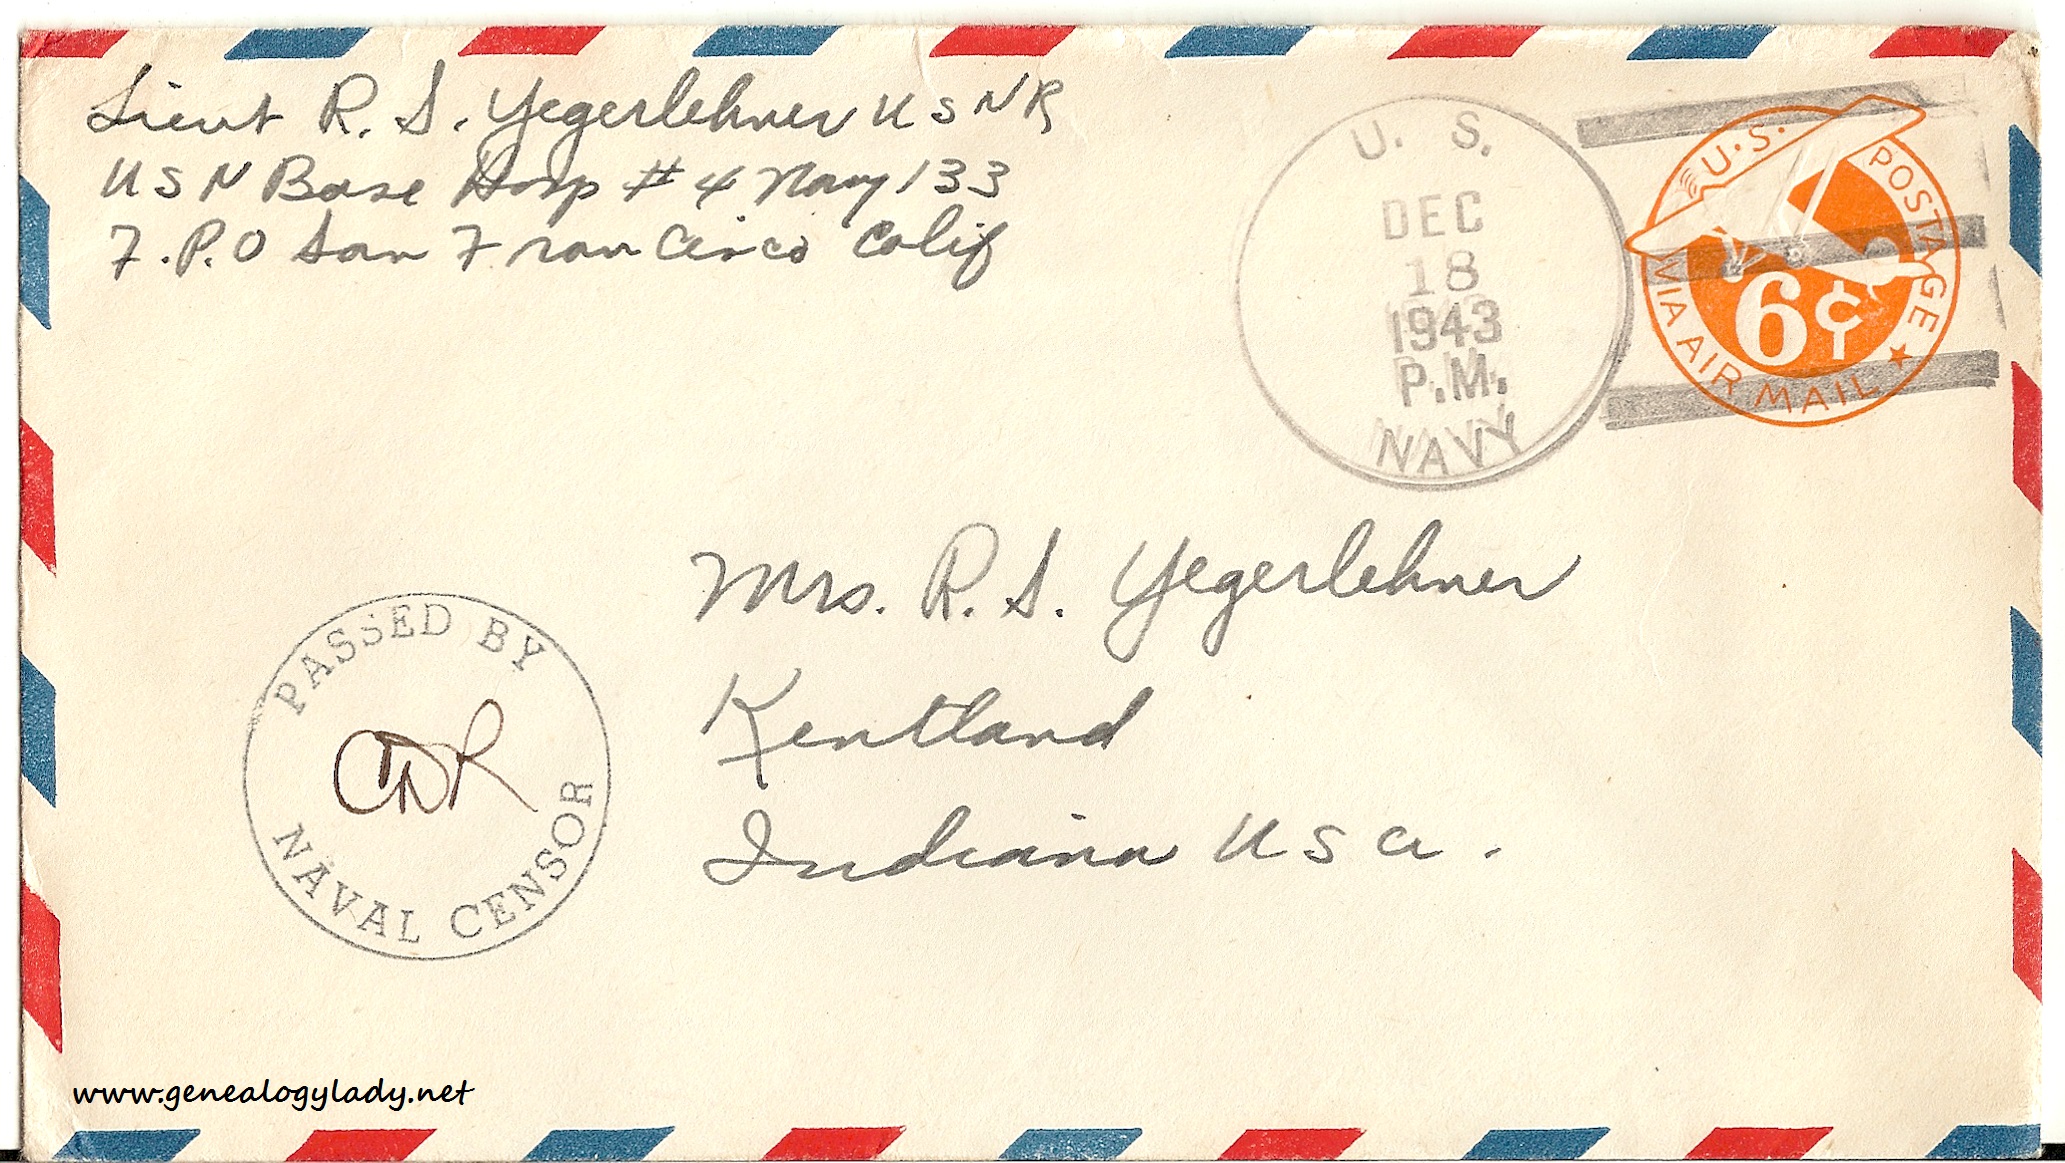 Lieut R. S. Yegerlehner USNR
USN Base Hosp #4 Navy 133
F.P.O San Francisco Calif
U. S.
DEC
18
1943
P.M.
NAVY
U.S. POSTAGE
6¢
VIA AIR MAIL
Mrs. R. S. Yegerlehner
Kentland
Indiana USA.
PASSED BY
CDR
NAVAL CENSOR
www.genealogylady.net